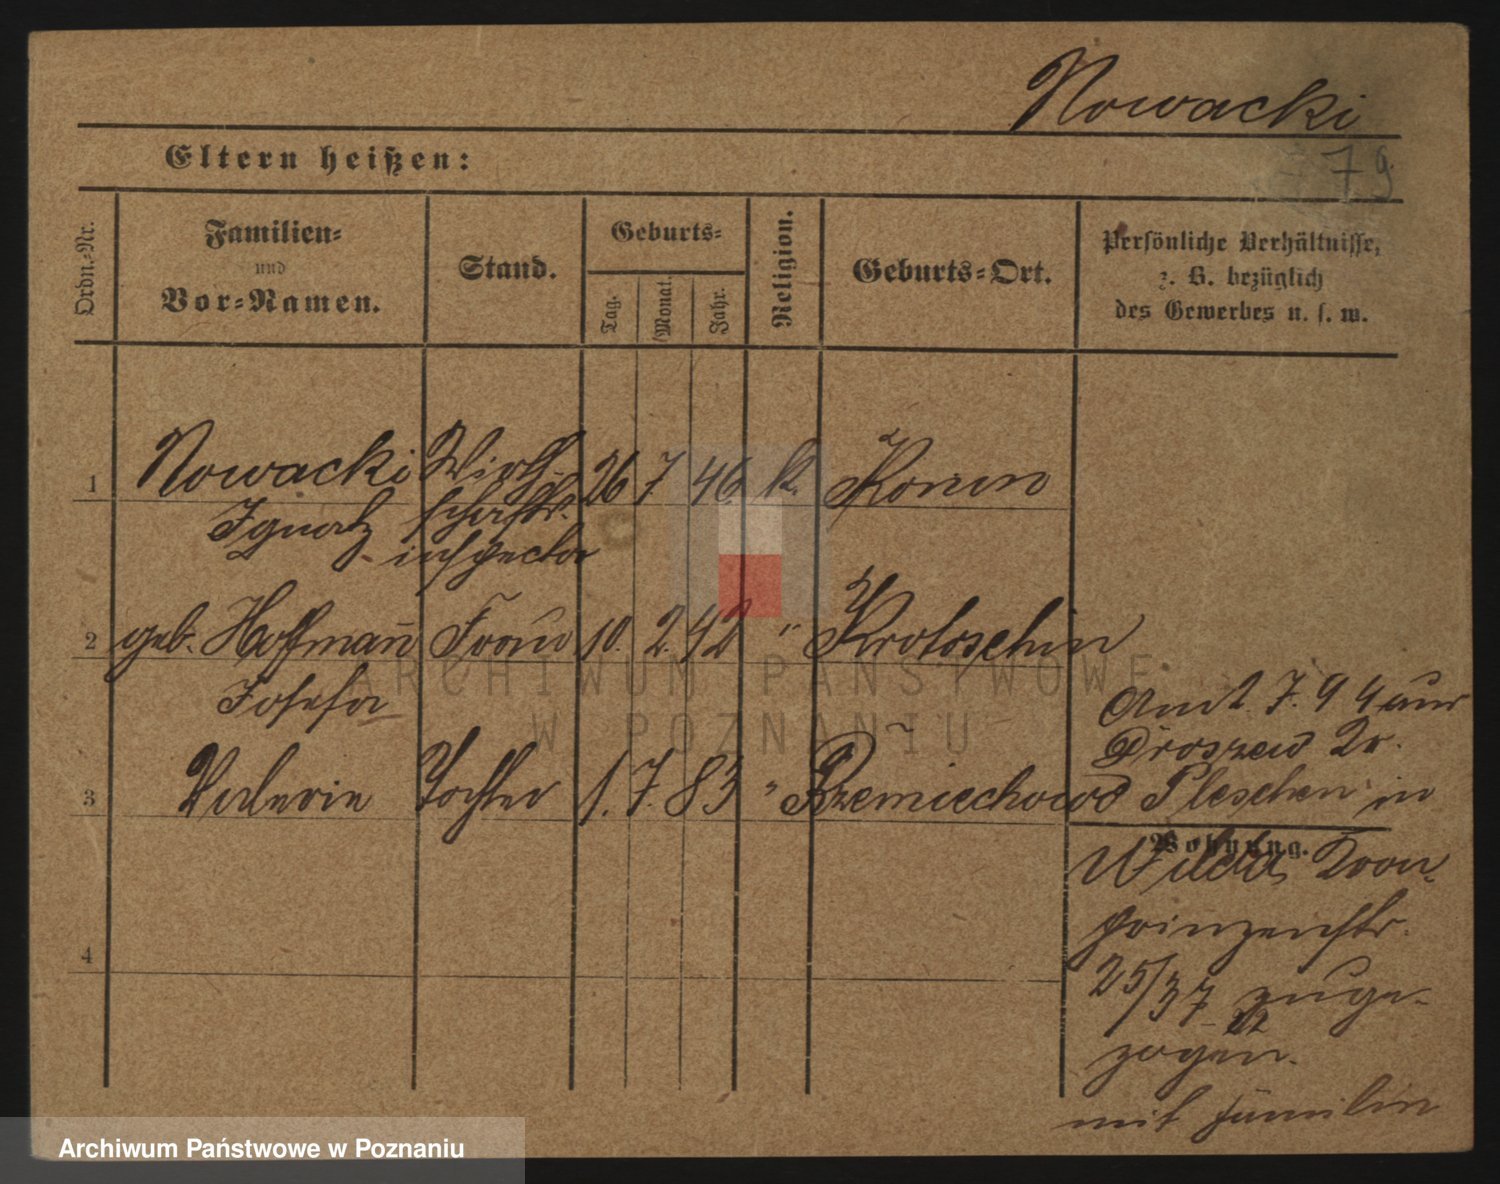 Nowacki
779
Eltern heißen:
Ordn.-Nr.
Familien-
und
Vor-Namen.
Stand.
Geburts-
Tag.
Monat.
Jahr.
Religion.
Geburts-Ort.
Persönliche Verhältnisse,
z. B. bezüglich
des Gewerbes u. s. w.
1 Nowacki Wirth- 26 7. 46. k. Konin
Ignatz schafts-
inspector
2 geb. Hoffmañ Frau 10. 2. 42 " Krotoschin
Josefa
3 Valerie Tochter 1. 7. 83 " Brzemiechowo
4
7. 94 aus
Droszew Kr.
Pleschen in
Wohnung.
Wilda, Kron-
prinzenstr.
25/37 zuge-
zogen.
mit Familie
ARCHIWUM PAŃSTWOWE
W POZNANIU
Archiwum Państwowe w Poznaniu